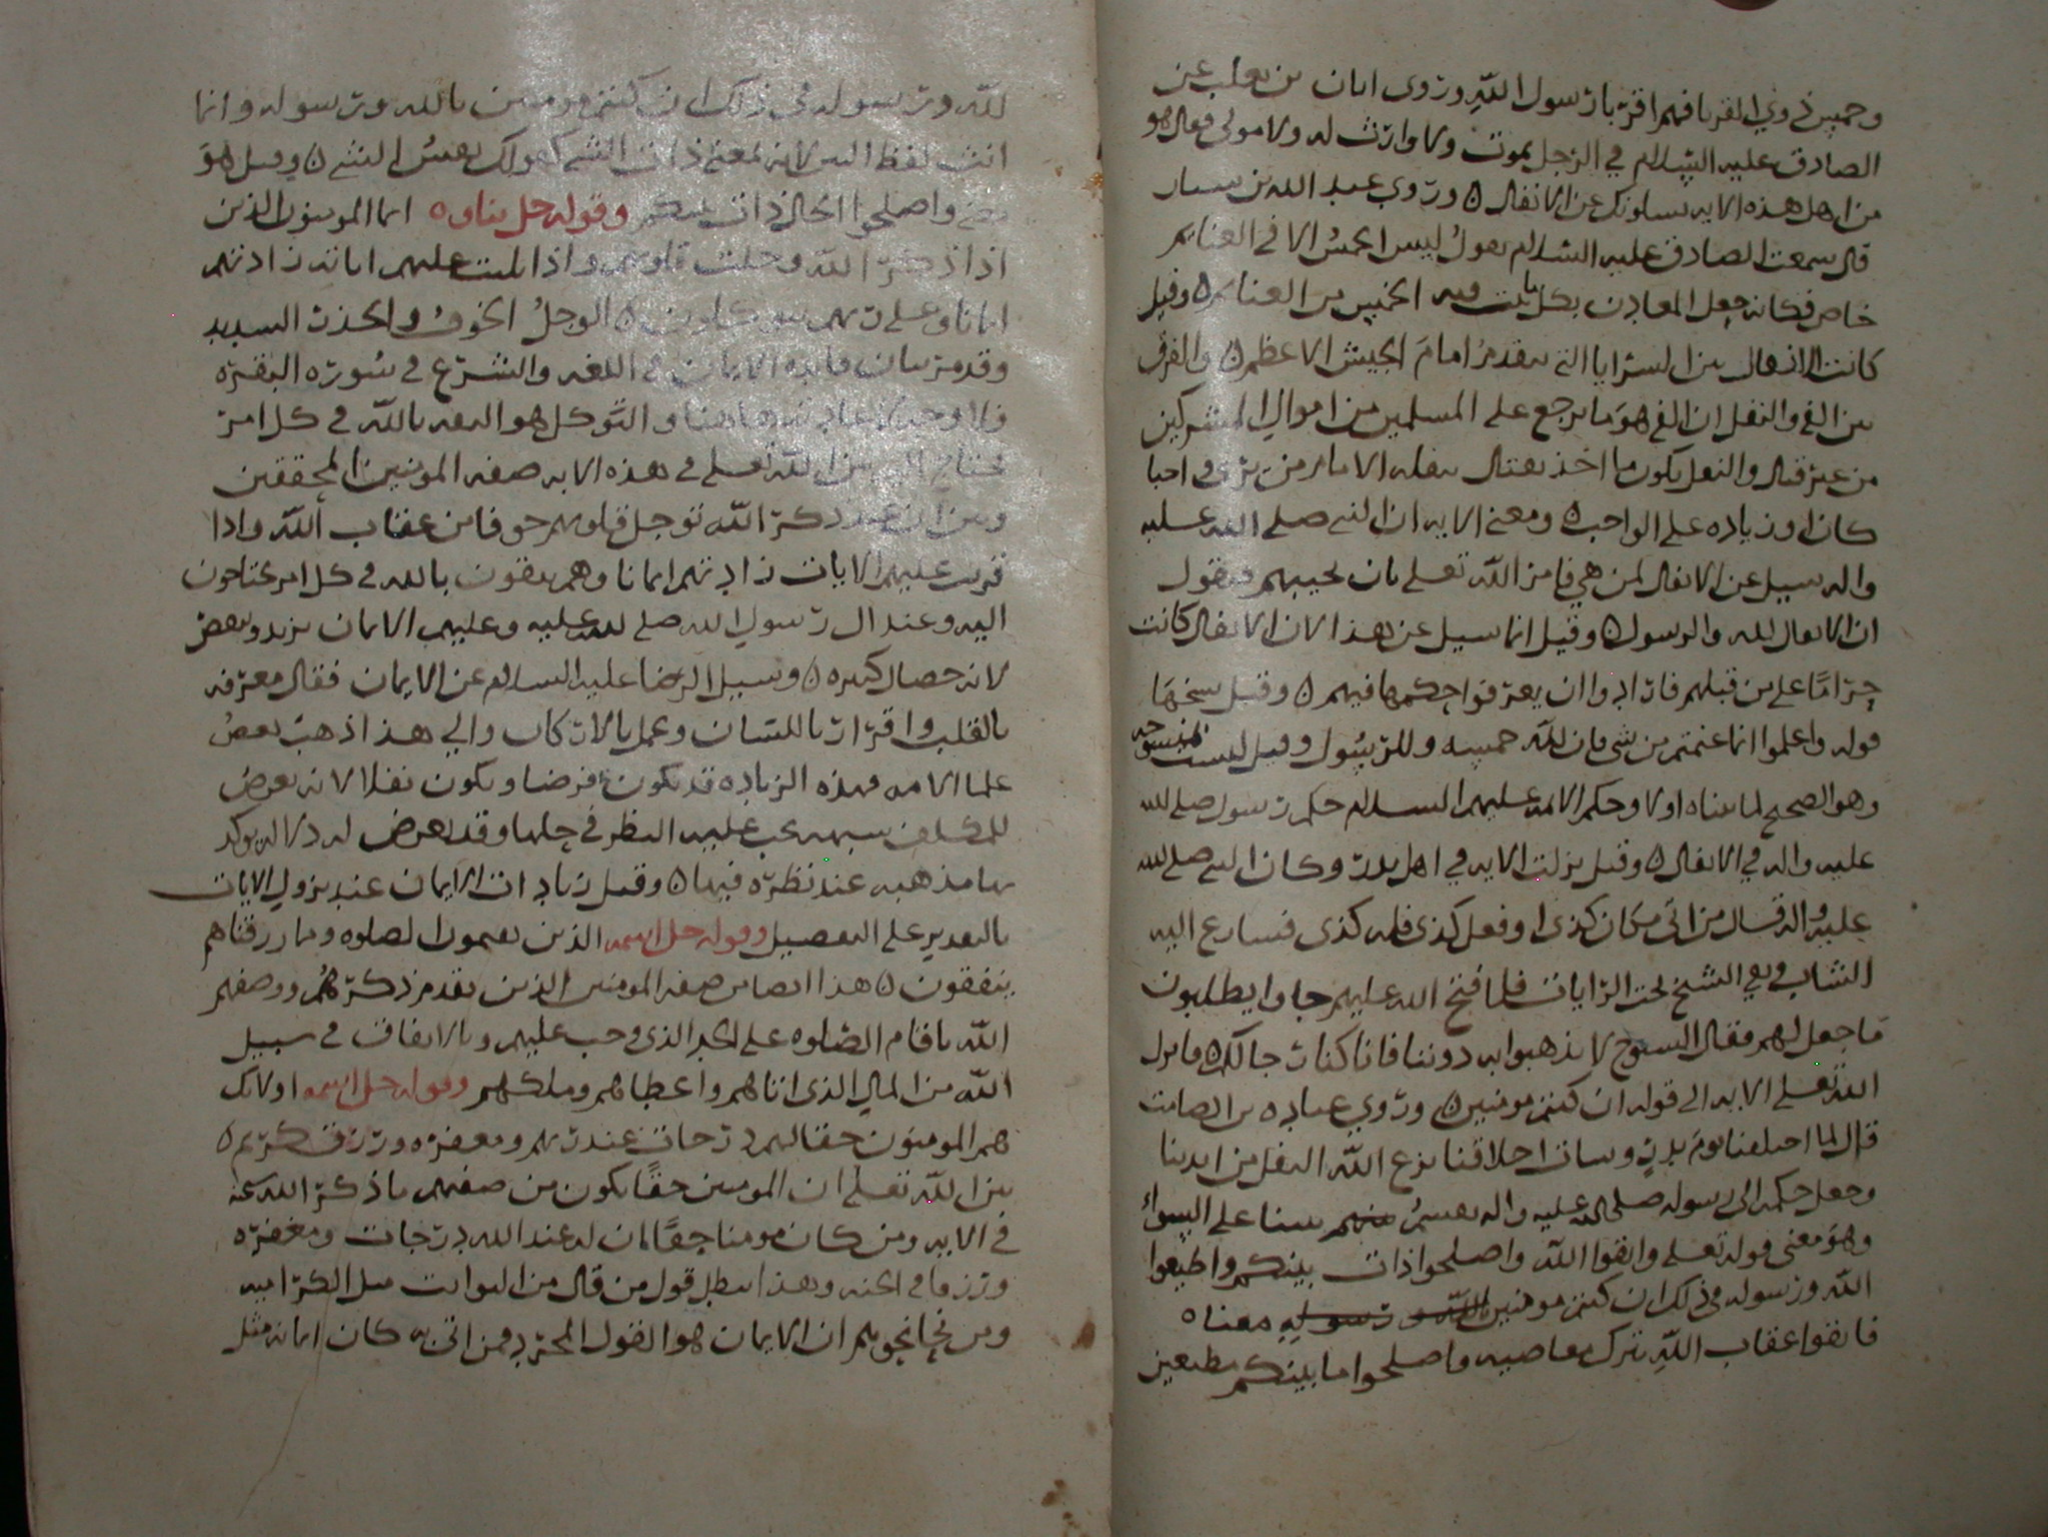 وخمس ذوي القربا فهم اقربا رسول الله وروى ابان بن تغلب عن
الصادق عليه السلام في الرجل يموت ولا وارث له ولا مولى فقال هو
من اهل هذه الايه يسلونك عن الانفال ۵ وروي عبد الله بن سنان
قال سمعت الصادق عليه السلام يقول ليس الخمس الا في الغنايم
خاص فكانه جعل المعادن بكل يابت فيه الخمس من الغنايم ۵ وقيل
كانت الانفال من السرايا التي تتقدم امام الجيش الاعظم ۵ والفرق
بين الفي والنفل ان الفي هو ما يرجع على المسلمين من اموال المشركين
من غير قتال والنفل يكون ما اخذ بقتال ينفله الامام من يرى واجبا
كان او زياده على الواجب ۵ ومعنى الايه ان النبي صلى الله عليه
واله سيل عن الانفال لمن هي فامر الله تعلى بان يجيبهم فيقول
ان الانفال لله والرسول ۵ وقيل انما سيل عن هذا لان الانفال كانت
حراما على من قبلهم فارادوا ان يعرفوا حكمها فيهم ۵ وقيل نسخها
قوله واعلموا انما غنمتم من شي فان لله خمسه وللرسول وقيل ليست بمنسوخه
وهو الصحيح لما بيناه اولا وحكم الايمه عليهم السلام حكم رسول صلى لله
عليه واله في الانفال ۵ وقيل نزلت الايه في اهل بدر وكان النبي صلى لله
عليه واله قال من اتى مكان كذى او فعل كذى فله كذى فسارع اليه
الشاب وبقي الشيخ تحت الرايات فلما فتح الله عليهم جاوا يطلبون
ما جعل لهم فقال الشيوخ لا تذهبوا به دوننا فانا كنا رجالكم ۵ فانزل
الله تعلى الايه الى قوله ان كنتم مومنين ۵ وروي عباده بن الصامت
قال لما اختلفنا يوم بدر وسات اخلاقنا نزع الله النفل من ايدينا
وجعل حكمه الى رسوله صلى الله عليه واله يقسم منهم بيننا على السواء
وهو معنى قوله تعلى واتقوا الله واصلحوا ذات بينكم واطيعوا
الله ورسوله في ذلك ان كنتم مومنين الله ورسوله معناه
فاتقوا عقاب الله بترك معاصيه واصلحوا ما بينكم مطيعين
لله ورسوله في ذلك ان كنتم مومنين بالله ورسوله وانما
انث لفظ البين لانه بمعنى ذات الشي كقولك نفس الشي ۵ وقيل هو
معنى واصلحوا الحال ذات بينكم وقوله جل ثناوه انما المومنون الذين
اذا ذكر الله وجلت قلوبهم واذا تليت عليهم اياته زادتهم
ايمانا وعلى ربهم يتوكلون ۵ الوجل الخوف والحذر الشديد
وقد مر بيان مايده الايمان في اللغه والشرع في سوره البقره
فلا وجه لاعادته هاهنا والتوكل هو الثقه بالله في كل امر
يحتاج اليه بين الله تعلى في هذه الايه صفه المومنين المحققين
وبين ان عند ذكر الله توجل قلوبهم خوفا من عقاب الله واذا
قريت عليهم الايات زادتهم ايمانا وهم يثقون بالله في كل امر يحتاجون
اليه وعند ال رسول الله صلى لله عليه وعليهم الايمان يزيد وينقص
لانه خصال كثيره ۵ وسيل الرضا عليه السلام عن الايمان فقال معرفه
بالقلب واقرار باللسان وعمل بالاركان والى هذا ذهب بعض
علما الامه فهذه الزياده قد تكون فرضا وتكون نفلا لانه يعرض
للمكلف شبهه يجب عليه النظر في حلها وقد يعرض له دلاله يوكد
بها مذهبه عند نظره فيها ۵ وقيل زيادات الايمان عند نزول الايات
بالتقدير على التفصيل وقوله جل اسمه الذين يقيمون الصلوه ومما رزقناهم
ينفقون ۵ هذا ايضا من صفه المومنين الذين تقدم ذكرهم ووصفهم
الله باقام الصلوه على الحد الذي وجب عليهم وبالانفاق في سبيل
الله من المال الذي اتاهم واعطاهم وملكهم وقوله جل اسمه اولايك
هم المومنون حقا لهم درجات عند ربهم ومغفره ورزق كريم ۵
بين الله تعلى ان المومنين حقا يكون من صفتهم ما ذكر الله عنه
في الايه ومن كان مومنا حقا فان له عند الله درجات ومغفره
ورزقا في الجنه وهذا يبطل قول من قال من النوابت مثل الكراميه
ومن نحا نحوهم ان الايمان هو القول المجرد فمن اتى به كان ايمانه مثل